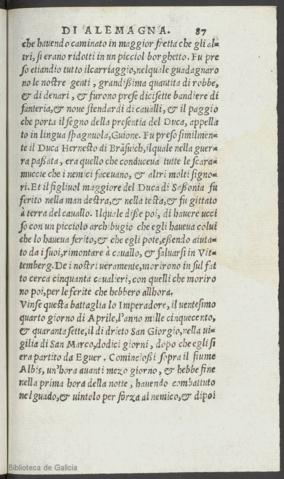 DI ALEMAGNA. 87
che hauendo caminato in maggior fretta che gli al-
tri, si erano ridotti in un picciol borghetto. Fu pre
so etiandio tutto il carriaggio, nel quale guadagnaro
no le nostre genti, grandißima quantita di robbe,
& di denari, & furono prese dicisette bandiere di
fanteria, & noue stendardi di caualli, & il paggio
che porta il segno della presentia del Duca, appella
to in lingua spagnuola, Guione. Fu preso similmen-
te il Duca Hernesto di Brãsuich, il quale nella guer-
ra paßata, era quello che conduceua tutte le scara-
muccie che i nemici faceuano, & altri molti signo-
ri. Et il figliuol maggiore del Duca di Saßonia fu
ferito nella man destra, & nella testa, & fu gittato
à terra del cauallo. Il quale diße poi, di hauere ucci
so con un picciolo archibugio che egli haueua colui
che lo haueua ferito, & che egli pote, eßendo aiuta-
to da i suoi, rimontare à cauallo, & saluarsi in Vit-
temberg. De i nostri ueramente, morirono in sul fat
to cerca cinquanta caualieri, con quelli che moriro
no poi, per le ferite che hebbero allhora.
Vinse questa battaglia lo Imperadore, il uentesimo
quarto giorno di Aprile, l'anno mille cinquecento,
& quaranta sette, il di drieto San Giorgio, nella ui-
gilia di San Marco, dodici giorni, dopo che egli si
era partito da Eguer. Comincioßi sopra il fiume
Albis, un'hora auanti mezo giorno, & hebbe fine
nella prima hora della notte, hauendo combattuto
nel guado, & uintolo per forza al nemico, & dipoi
Biblioteca de Galicia